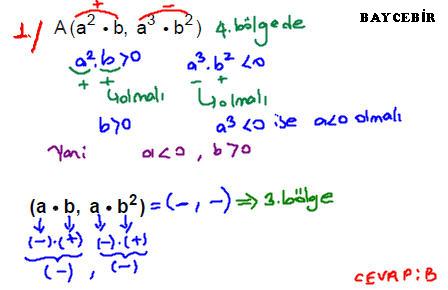 BAYCEBİR
+ −
1./ A(a² • b, a³ • b²) 4.bölgede
a².b>0 a³.b²<0
+ + − +
↳olmalı ↳olmalı
b>0 a³<0 ise a<0 olmalı
Yani a<0 , b>0
(a • b, a • b²) = (−, −) ⇒ 3.bölge
(−).(+) (−).(+)
(−) , (−)
CEVAP: B